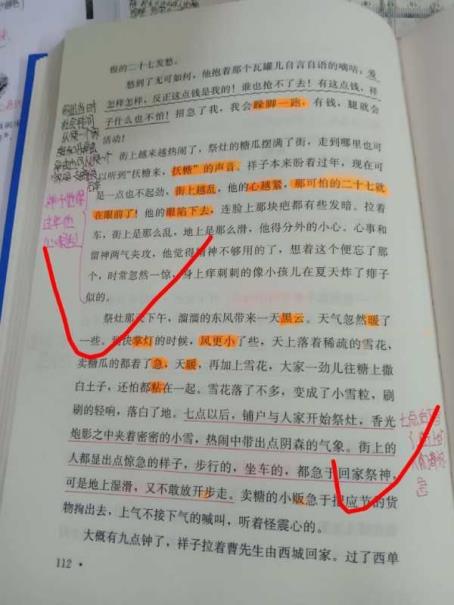 极的二十七发愁。
愁到了无可如何，他抱着那个瓦罐儿自言自语的嘀咕：爱
怎样怎样，反正这点钱是我的！谁也抢不了去！有这点钱，祥
子什么也不怕！招急了我，我会跺脚一跑，有钱，腿就会
活动！
街上越来越热闹了，祭灶的糖瓜摆满了街，走到哪里也可
以听到“扷糖来，扷糖”的声音。祥子本来盼着过年，现在可
是一点也不起劲，街上越乱，他的心越紧，那可怕的二十七就
在眼前了！他的眼陷下去，连脸上那块疤都有些发暗。拉着
车，街上是那么乱，地上是那么滑，他得分外的小心。心事和
留神两气夹攻，他觉得精神不够用的了，想着这个便忘了那
个，时常忽然一惊，身上痒刺刺的像小孩儿在夏天炸了痱子
似的。
祭灶那天下午，溜溜的东风带来一天黑云。天气忽然暖了
一些。到快掌灯的时候，风更小了些，天上落着稀疏的雪花。
卖糖瓜的都着了急，天暖，再加上雪花，大家一劲儿往糖上撒
白土子，还怕都粘在一起。雪花落了不多，变成了小雪粒，刷
刷的轻响，落白了地。七点以后，铺户与人家开始祭灶，香光
炮影之中夹着密密的小雪，热闹中带出点阴森的气象。街上的
人都显出点惊急的样子，步行的，坐车的，都急于回家祭神，
可是地上湿滑，又不敢放开步走。卖糖的小贩急于把应节的货
物掏出去，上气不接下气的喊叫，听着怪震心的。
大概有九点钟了，祥子拉着曹先生由西城回家。过了西单
112